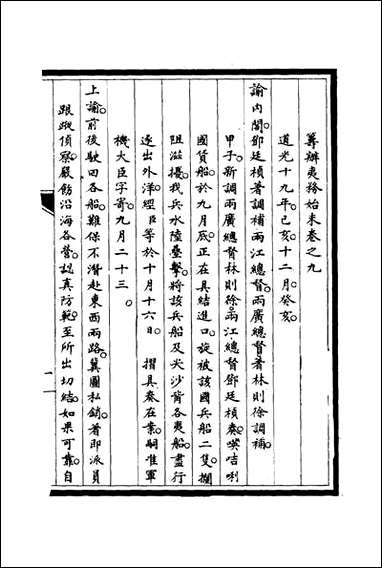 籌辦夷務始末卷之九
道光十九年己亥十二月癸亥
諭內閣鄧廷楨著調補兩江總督兩廣總督著林則徐調補
甲子新調兩廣總督林則徐兩江總督鄧廷楨奏㗲咭唎
國貨船於九月底正在具結進口旋被該國兵船二隻攔
阻滋擾我兵水陸疊擊將該兵船及尖沙觜各夷船盡行
逐出外洋經臣等於十月十六日摺具奏在案嗣准軍
機大臣字寄九月二十三
上諭前後駛回各船難保不潛赴東西兩路冀圖私銷著即派員
跟蹤偵察嚴飭沿海各營認真防範至所出切結如果可靠自
一